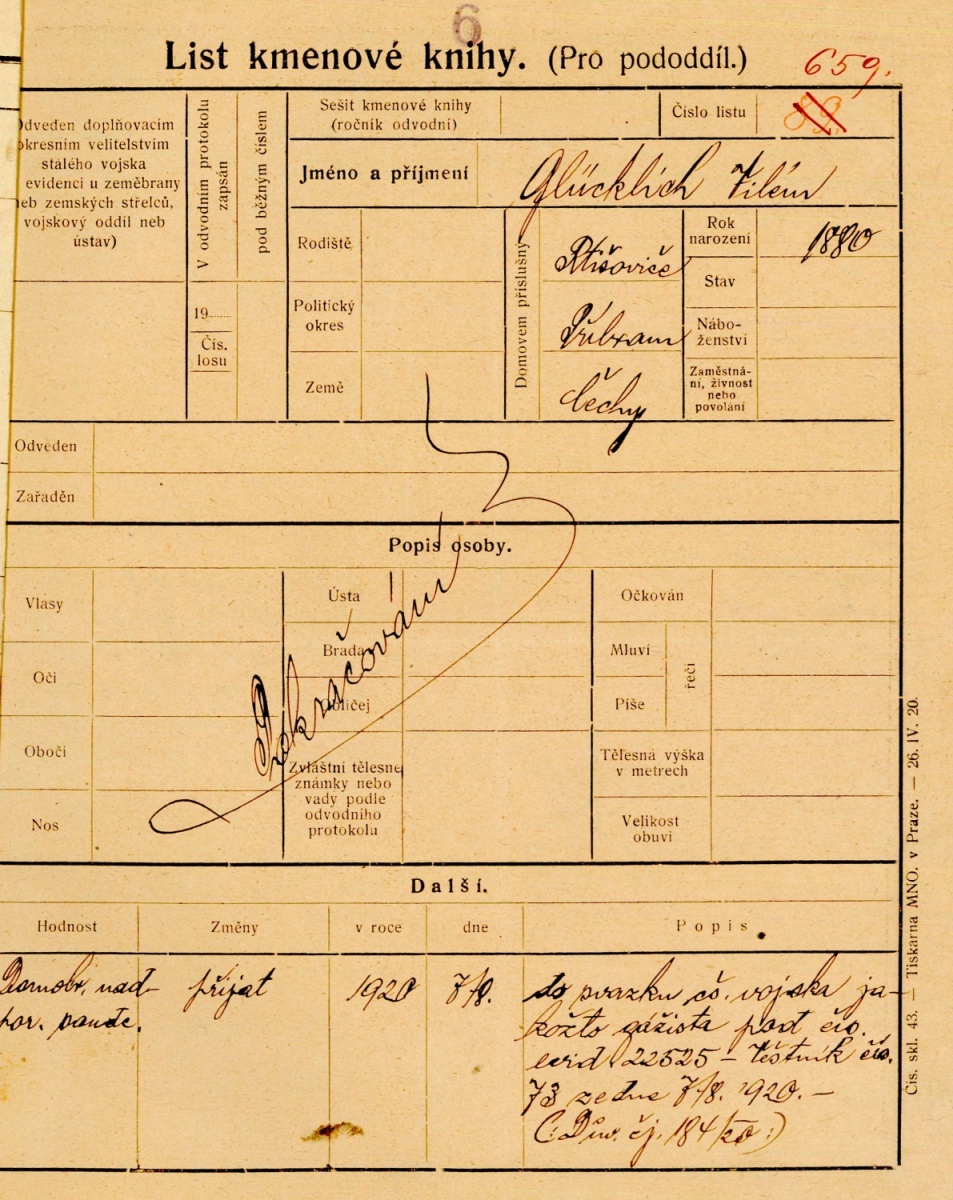 6
List kmenové knihy. (Pro pododdíl.)
659.
dveden doplňovacím
okresním velitelstvím
stálého vojska
evidenci u zeměbrany
eb zemských střelců,
vojskový oddíl neb
ústav)
V odvodním protokolu
zapsán
pod běžným číslem
19........
Čís.
losu
Sešit kmenové knihy
(ročník odvodní)
Číslo listu
Jméno a příjmení
Glücklich Vilém
Rodiště
Politický
okres
Země
Domovem příslušný
Ptišovice
Příbram
Čechy
Rok
narození
1880
Stav
Nábo-
ženství
Zaměstná-
ní, živnost
nebo
povolání
Odveden
Zařaděn
Popis osoby.
Vlasy
Oči
Obočí
Nos
Ústa
Brada
Obličej
Zvláštní tělesné
známky nebo
vady podle
odvodního
protokolu
Očkován
Mluví
Píše
řečí
Tělesná výška
v metrech
Velikost
obuvi
Pokračování
Další.
Hodnost
Změny
v roce
dne
Popis
Domobr. nad-
por.
přijat
1920
7/8.
do svazku čs. vojska ja-
kožto gážista pod čís.
evid 22525 – Věstník čís.
73 ze dne 7/8. 1920. –
(: Dův. čj. 184/20 :)
Čís. skl. 43. — Tiskárna MNO. v Praze. — 26. IV. 20.